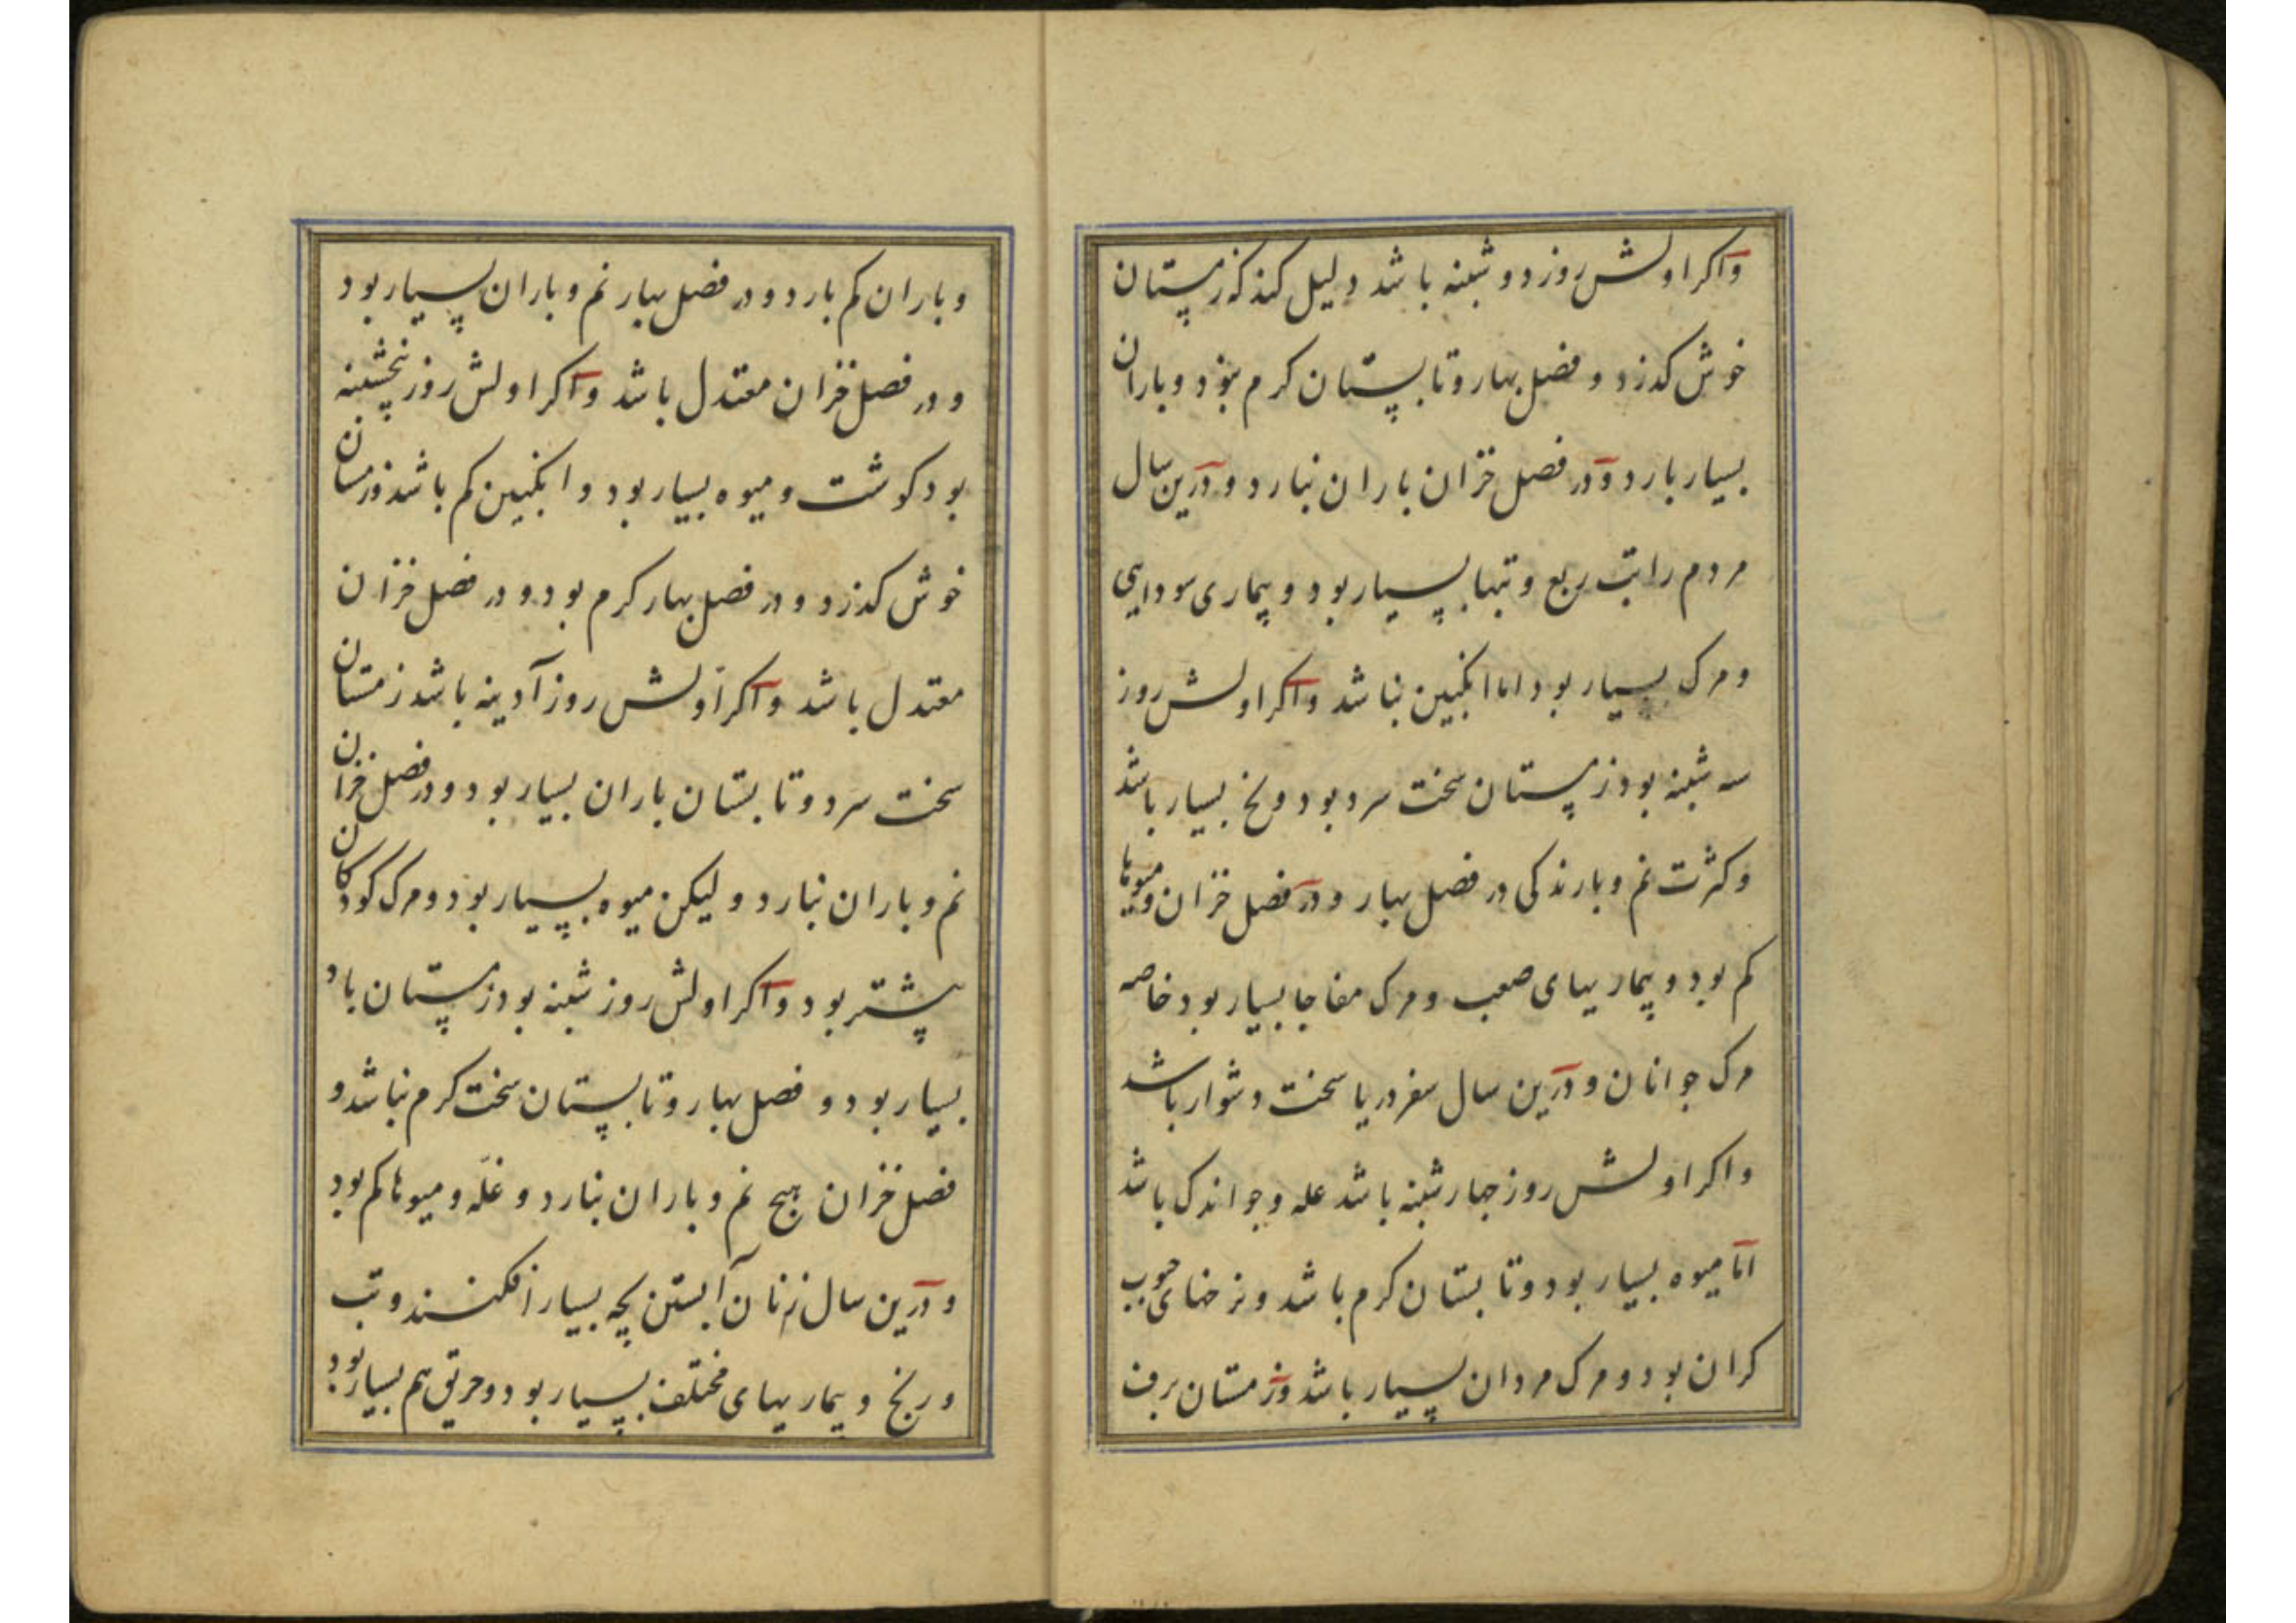 واکر اولش روز دو شنبه باشد دلیل کند که زمستان
خوش کذرد و فصل بهار و تابستان کرم بود و باران
بسیار بارد و در فصل خزان باران نبارد و درین سال
مردم را تب ربع و تبها بسیار بود و بیماری سودایی
و مرک بسیار بود اما انکبین نباشد واکر اولش روز
سه شنبه بود زمستان سخت سرد بود و یخ بسیار باشد
و کثرت نم و بارندکی در فصل بهار و در فصل خزان و میوها
کم بود و بیماریهای صعب و مرک مفاجا بسیار بود خاصه
مرک جوانان و درین سال سفر دریا سخت دشوار باشد
واکر اولش روز چهارشنبه باشد غله و جو اندک باشد
اما میوه بسیار بود و تابستان کرم باشد و نرخهای حبوب
کران بود و مرک مردان بسیار باشد و زمستان برف
و باران کم بارد و در فصل بهار نم و باران بسیار بود
و در فصل خزان معتدل باشد واکر اولش روز پنجشنبه
بود کوشت و میوه بسیار بود و انکبین کم باشد و زمستان
خوش کذرد و در فصل بهار کرم بود و در فصل خزان
معتدل باشد واکر اولش روز آدینه باشد زمستان
سخت سرد و تابستان باران بسیار بود و در فصل خزان
نم و باران نبارد و لیکن میوه بسیار بود و مرک کودکان
بیشتر بود واکر اولش روز شنبه بود زمستان باد
بسیار بود و فصل بهار و تابستان سخت کرم نباشد و
فصل خزان هیچ نم و باران نبارد و غلّه و میوها کم بود
و درین سال زنان آبستن بچه بسیار افکنند و تب
و رنج و بیماریهای مختلف بسیار بود و حریق هم بسیار بود